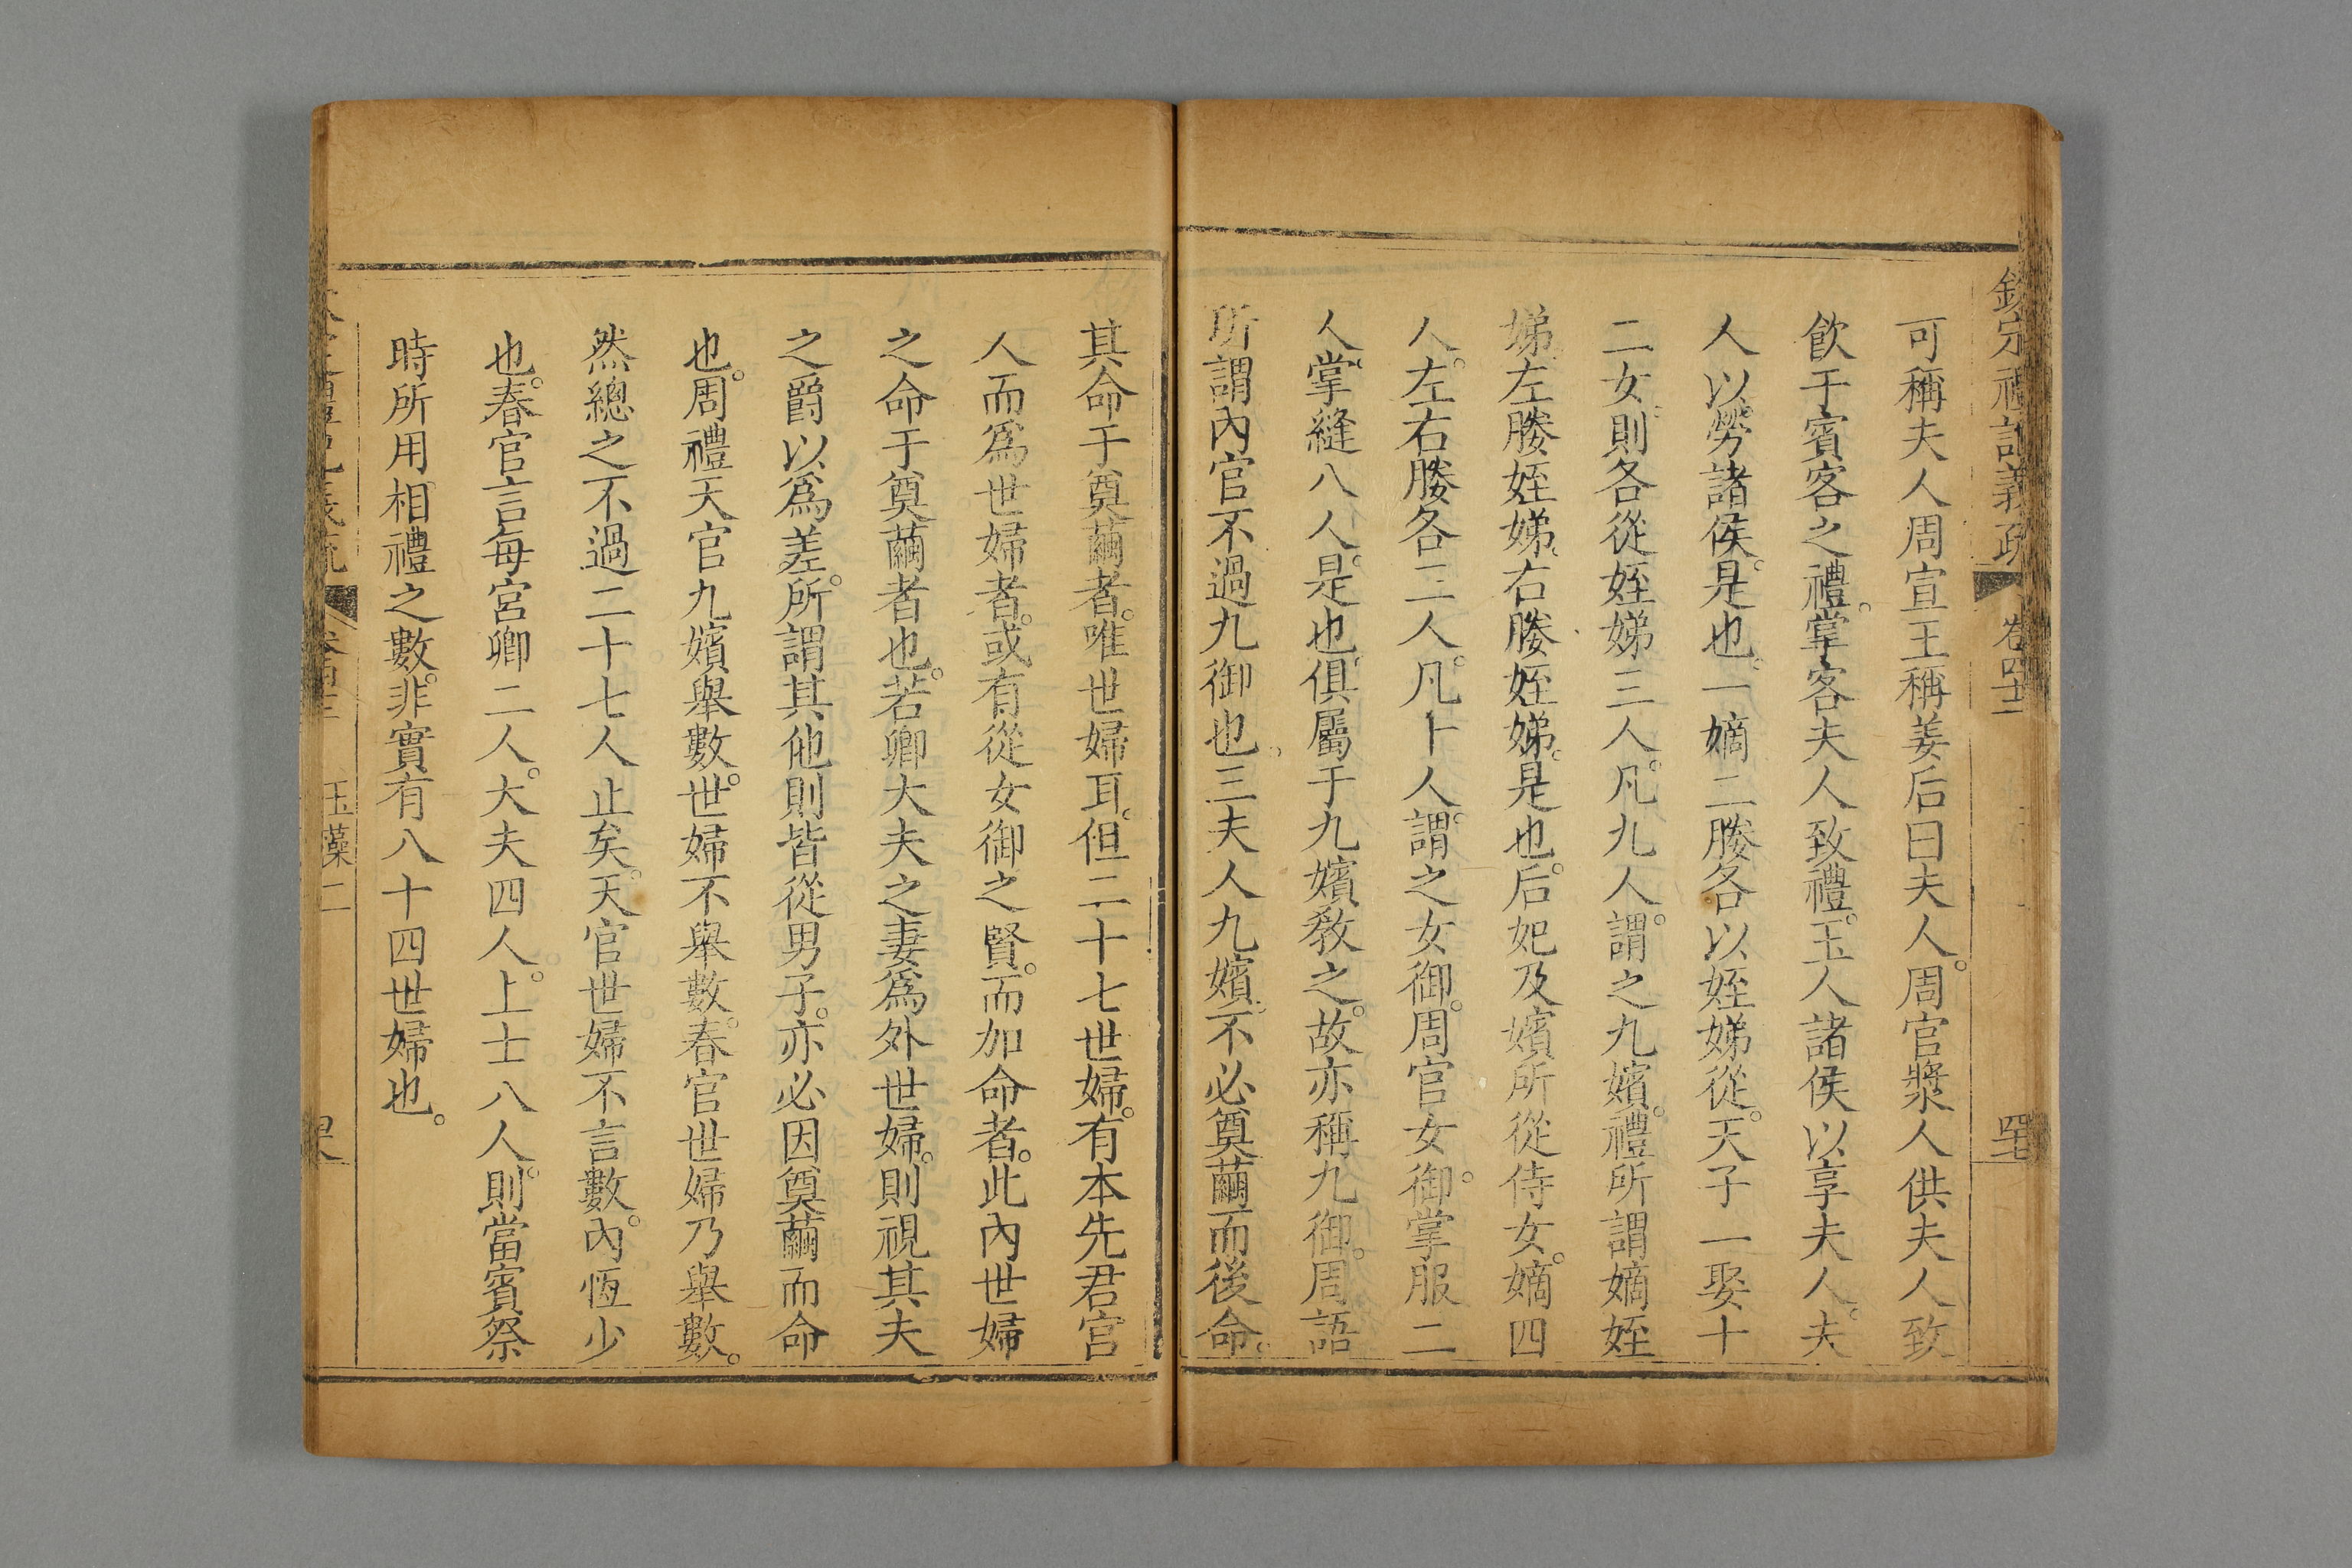 欽定禮記義疏 卷四十二
可稱夫人周宣王稱姜后曰夫人。周官漿人供夫人致
飲于賓客之禮。掌客夫人致禮。玉人諸侯以享夫人。夫
人以勞諸侯。是也。一嫡二媵各以姪娣從。天子一娶十
二女。則各從姪娣三人。凡九人。謂之九嬪。禮所謂嫡姪
娣左媵姪娣。右媵姪娣。是也。后妃及嬪所從侍女。嫡四
人。左右媵各二人。凡卜人。謂之女御。周官女御。掌服二
人掌縫八人。是也。俱屬于九嬪敎之。故亦稱九御。周語
所謂內官不過九御也。三夫人九嬪。不必奠繭而後命。
其命于奠繭者。唯世婦耳。但二十七世婦。有本先君宮
人而爲世婦者。或有從女御之賢。而加命者。此內世婦
之命于奠繭者也。若卿大夫之妻爲外世婦。則視其夫
之爵以爲差。所謂其他則皆從男子。亦必因奠繭而命
也。周禮天官九嬪舉數。世婦不舉數。春官世婦乃舉數。
然總之不過二十七人止矣。天官世婦不言數。內恆少
也。春官言每宮卿二人。大夫四人。上士八人。則當賓祭
時所用相禮之數。非實有八十四世婦也。
玉藻二